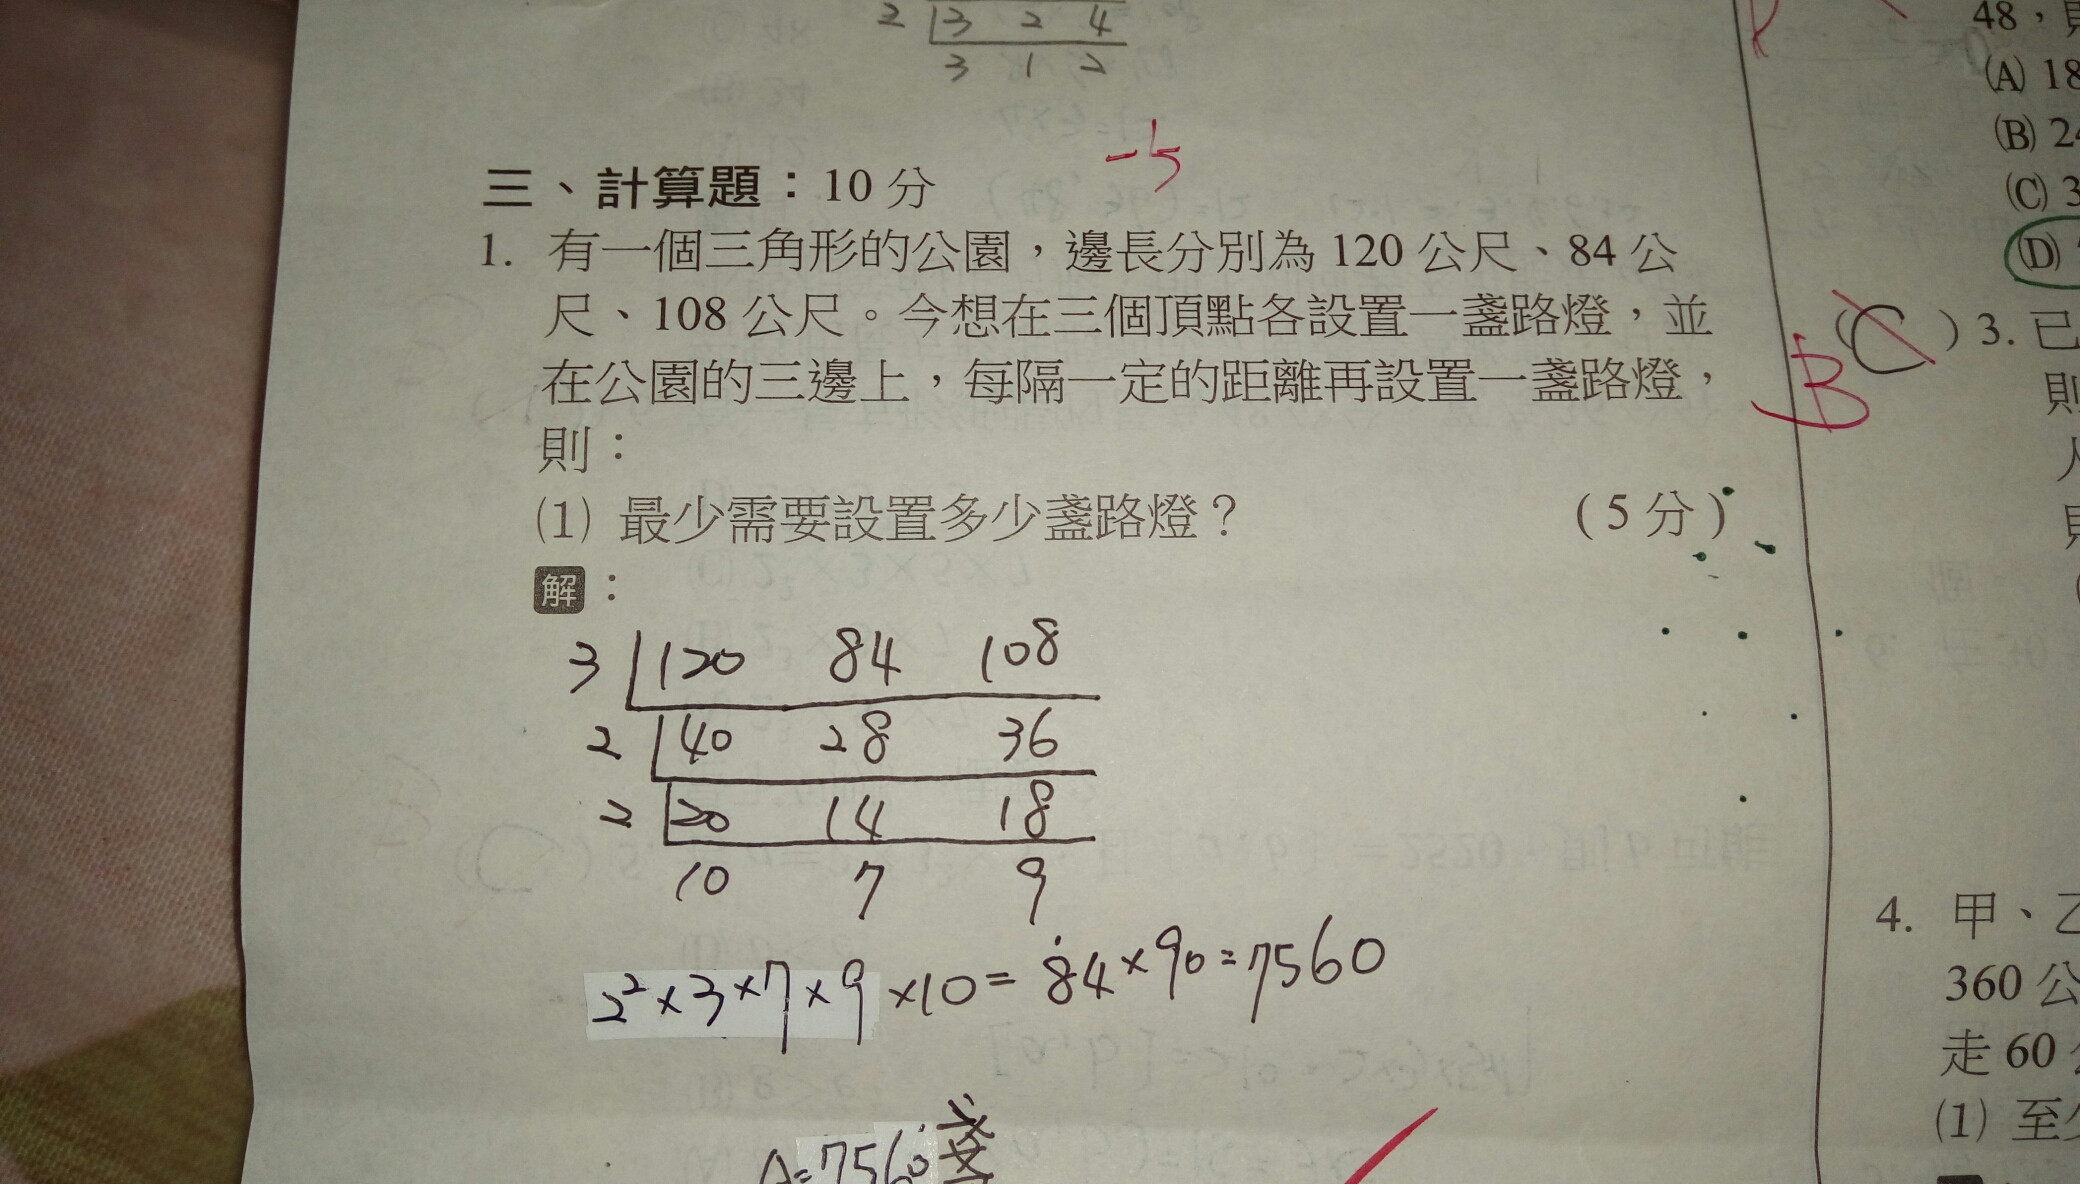 2 3 2 4
3 1 2
-5
三、計算題：10 分
1. 有一個三角形的公園，邊長分別為 120 公尺、84 公
尺、108 公尺。今想在三個頂點各設置一盞路燈，並
在公園的三邊上，每隔一定的距離再設置一盞路燈，
則：
(1) 最少需要設置多少盞路燈？ (5 分)
解：
3 120 84 108
2 40 28 36
2 20 14 18
10 7 9
2²×3×7×9×10=84×90=7560
A=7560盞
48，
(A) 18
(B) 24
(C) 3
(D)
B
(C) 3. 已
則
4. 甲、乙
360 公
走 60
(1) 至少